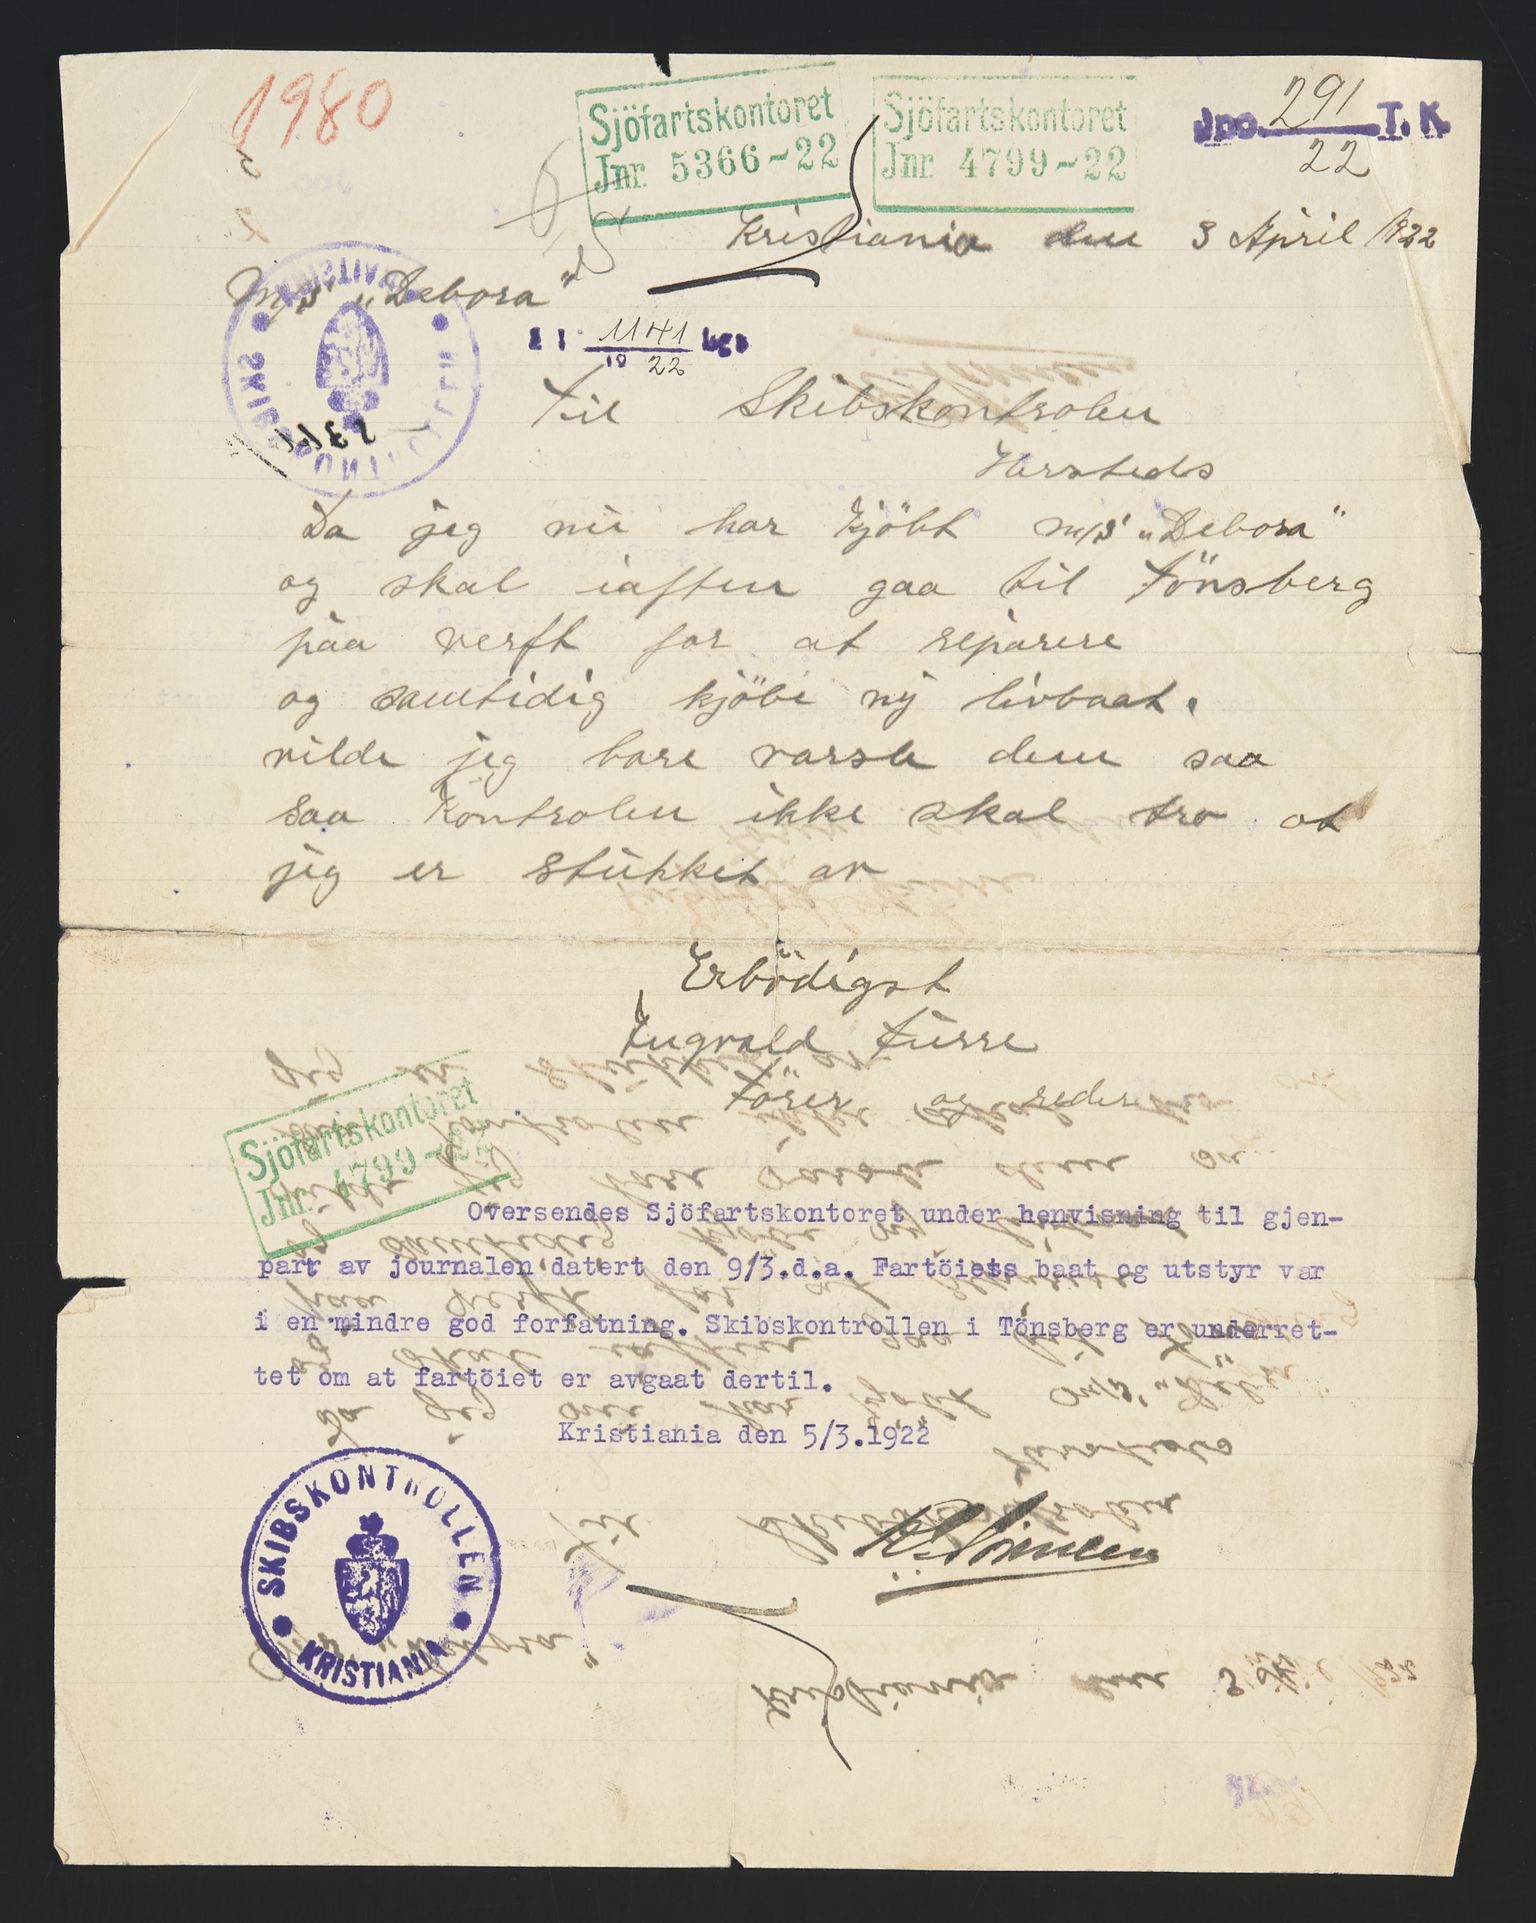 1980
Sjöfartskontoret
Jnr. 5366-22
Sjöfartskontoret
Jnr. 4799-22
Jno. 291 T. K.
22
Kristiania den 3 April 1922
M/S „Debora"
1141
10 22
Til Skibskontrolen
Hersteds
Da jeg nu har kjöbt M/S „Debora"
og skal iaften gaa til Tönsberg
paa verft for at reparere
og samtidig kjöbe ny livbaat.
vilde jeg bare varsle dem saa
saa Kontrolen ikke skal tro at
jeg er stukket av
Erbödigst
Ingvald Furre
Förer og reder
Sjöfartskontoret
Jnr. 4799-22
Oversendes Sjöfartskontoret under henvisning til gjen-
part av journalen datert den 9/3.d.a. Fartöiets baat og utstyr var
i en mindre god forfatning. Skibskontrollen i Tönsberg er underret-
tet om at fartöiet er avgaat dertil.
Kristiania den 5/3.1922
SKIBSKONTROLLEN
KRISTIANIA